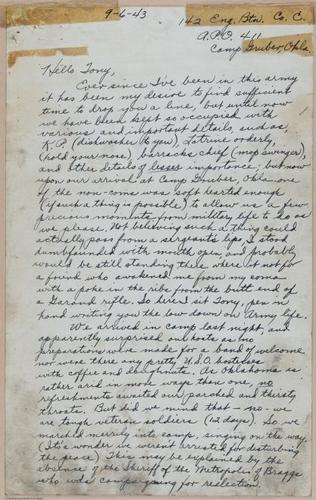 9-6-43
142 Eng. Btn. Co. C.
A.P.O. 411
Camp Gruber, Okla.
Hello Tony,
Ever since I've been in this army
it has been my desire to find sufficient
time to drop you a line, but until now
we have been kept so occupied with
various and important details, such as,
K.P. (dishwasher to you), Latrine orderly,
(hold your nose), barracks chief (mop swinger),
and other details of lesser importance, but now
upon our arrival at Camp Gruber, Okla. one
of the non-coms was soft hearted enough
(if such a thing is possible) to allow us a few
precious moments from military life to do as
we please. Not believing such a thing could
actually pass from a sergeant's lips, I stood
dumbfounded with mouth open and probably
would be still standing there, where it not for
a friend who awakened me from my coma
with a poke in the ribs from the butt end of
a Garand rifle. So here I sit Tony, pen in
hand writing you the low down on Army life.
We arrived in camp last night, and
apparently surprised our hosts as no
preparations were made for a band of welcome
nor were there any pretty U.S.O. hostesses
with coffee and doughnuts. As Oklahoma is
rather arid in more ways than one, no
refreshments awaited our parched and thirsty
throats. But did we mind that - no - we
are tough veteran soldiers (12 days). So we
marched merrily into camp, singing on the way.
(It's a wonder we weren't arrested for disturbing
the peace) This may be explained by the
absence of the Sheriff of the Metropolis of Braggs
who was campaigning for reelection.